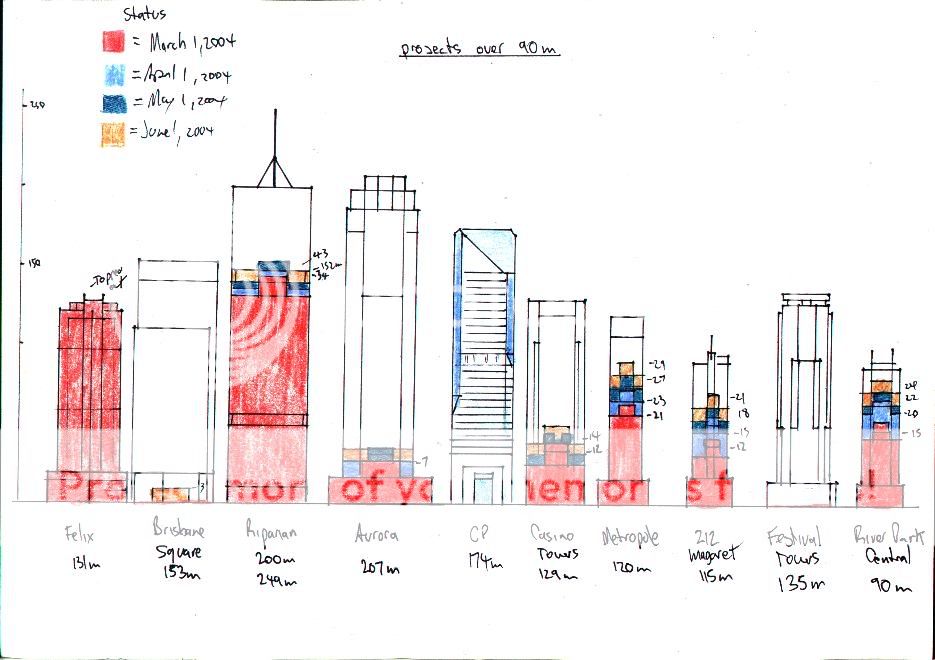 Status
= March 1, 2004
= April 1, 2004
= May 1, 2004
= June 1, 2004
projects over 90m
150
43
152m
34
29
27
23
21
21
18
15
12
14
12
22
20
15
7
3
Felix
131m
Brisbane
Square
153m
Riparian
200m
249m
Aurora
207m
CP
174m
Casino
Towers
129m
Metropole
120m
212
Margaret
115m
Festival
Towers
135m
River Park
Central
90m